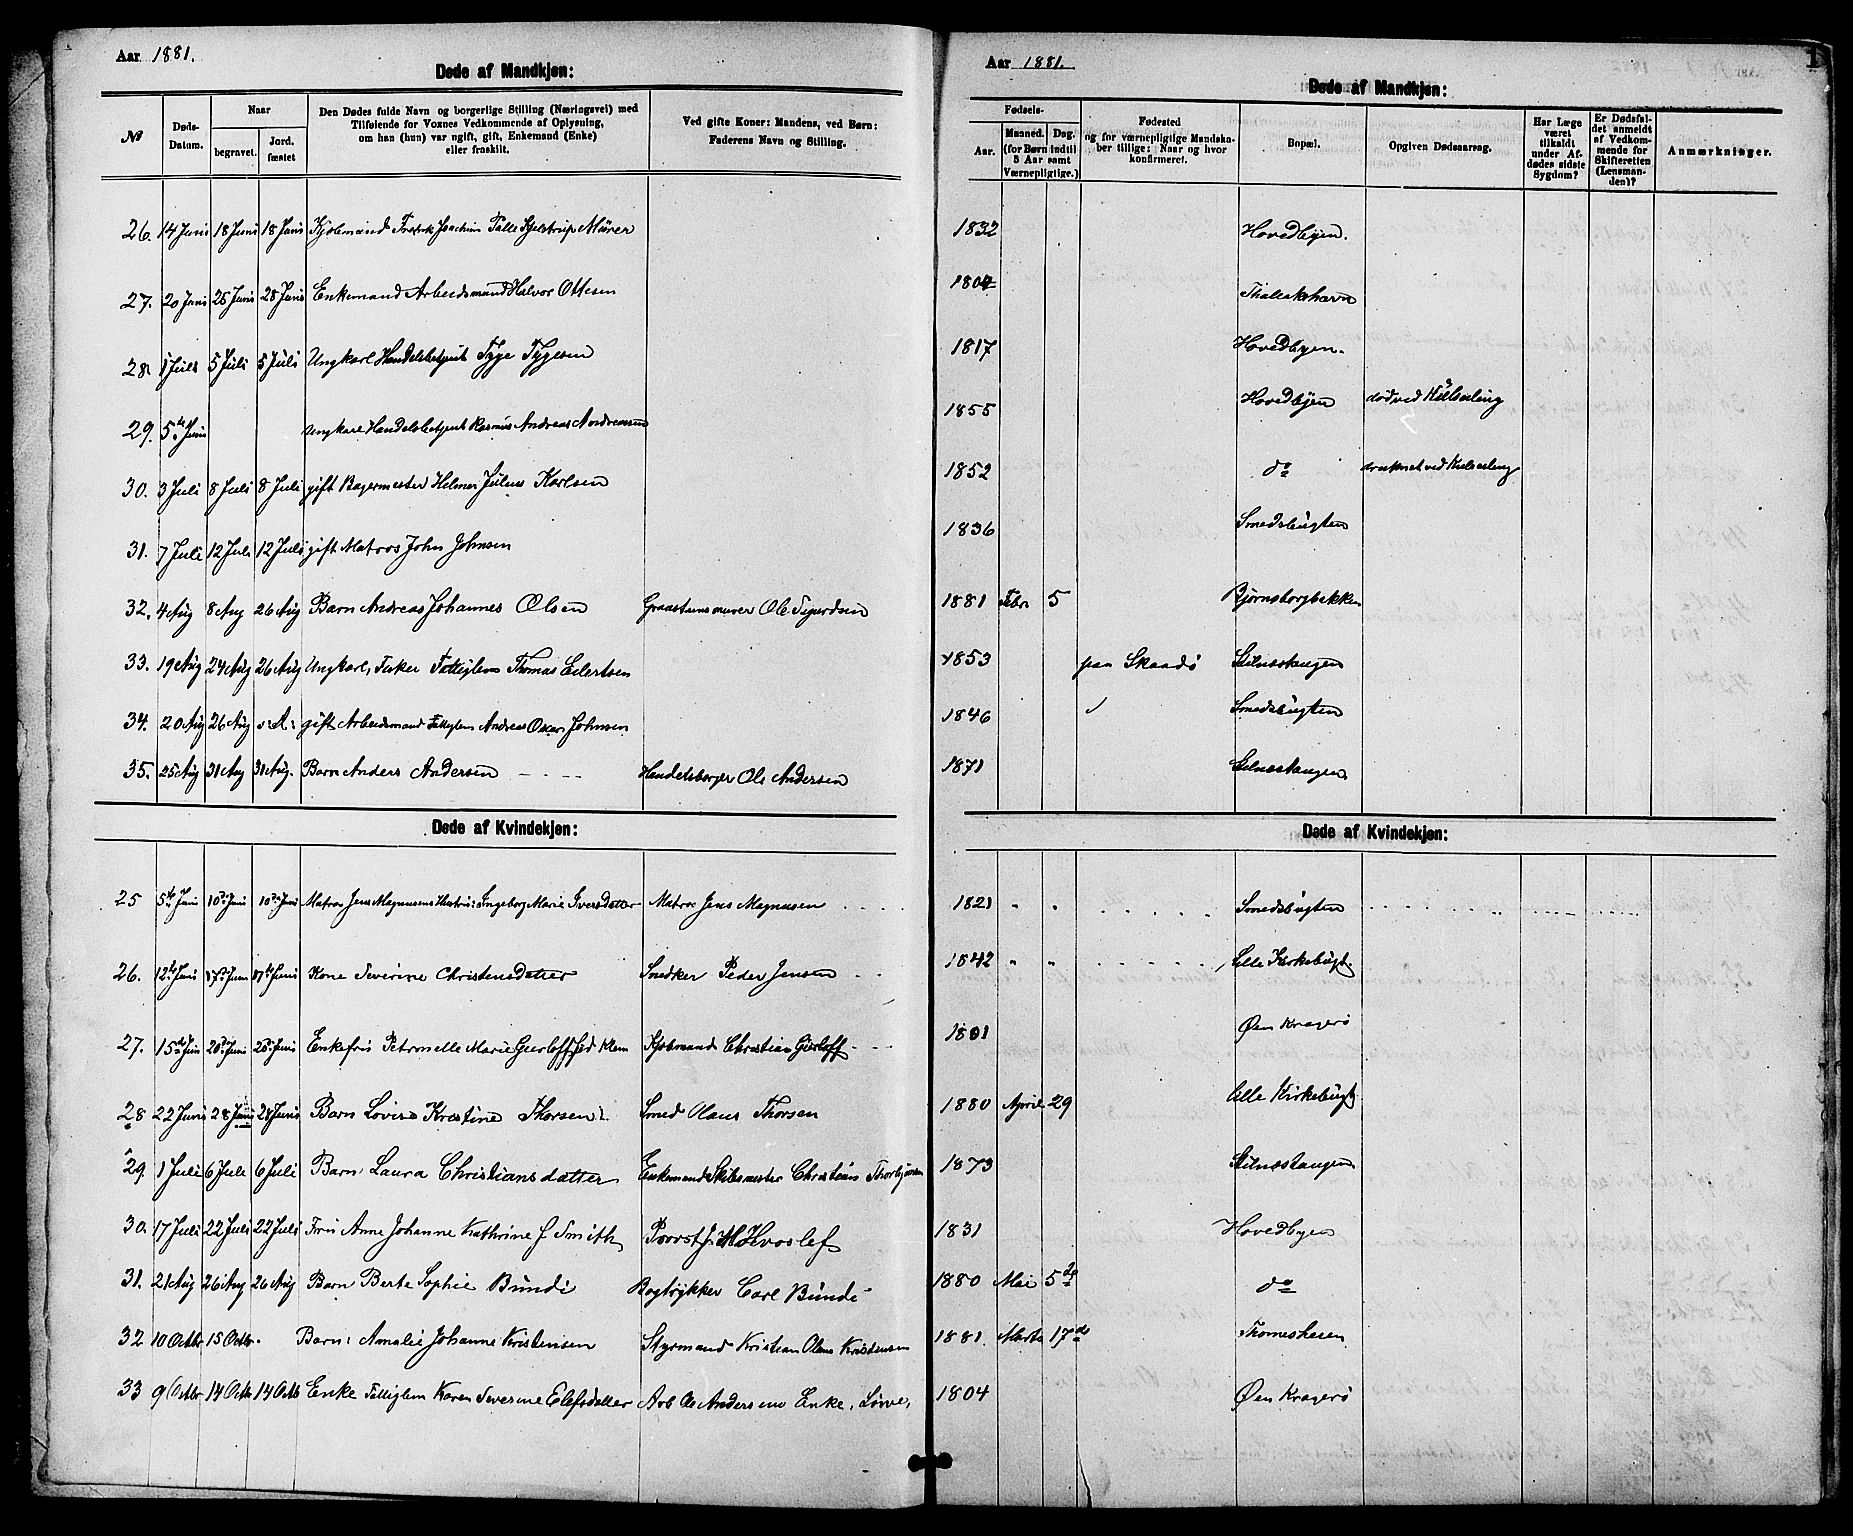 Aar 1881.
Døde af Mandkjøn:
№
Døds-Datum.
Naar
begravet.
Jord. fæstet
Den Dødes fulde Navn og borgerlige Stilling (Næringsvei) med
Tilføiende for Voxnes Vedkommende af Oplysning,
om han (hun) var ugift, gift, Enkemand (Enke)
eller fraskilt.
Ved gifte Koner: Mandens, ved Børn:
Faderens Navn og Stilling.
26. 14 Juni 18 Juni 18 Juni Kjøbmand Fredrik Joachim Falle Kjelstrup Mürer
27. 20 Juni 25 Juni 28 Juni Enkemand Arbeidsmand Halvor Ottesen
28. 1 Juli 5 Juli 5 Juli Ungkarl Handelsbetjent Tyge Tygesen
29. 5te Juni Ungkarl Handelsbetjent Rasmus Andreas Andreassen
30. 3 Juli 8 Juli 8 Juli gift Bagermester Helmer Julius Karlsen
31. 7 Juli 12 Juli 12 Juli gift Matros John Johnsen
32. 4 Aug 8 Aug 26 Aug Barn Andreas Johannes Olsen Graastensmurer Ole Sigurdsen
33. 19 Aug 24 Aug 26 Aug Ungkarl, Fisker Fattiglem Thomas Eilertsen
34. 20 Aug 26 Aug s: D: gift Arbeidsmand Fattiglem Andreas Oscar Johnsen
35. 25 Aug 31 Aug 31 Aug. Barn Anders Andersen - - - - Handelsborger Ole Andersen
Døde af Kvindekjøn:
25 5te Juni 10de Juni 10de Juni Matros Jens Magnusens Hustru: Ingeborg Marie Iversdatter Matros Jens Magnusen
26. 12te Juni 17de Juni 17de Juni Kone Severine Christensdatter Snedker Peder Jensen
27. 15de Juni 20de Juni 20de Juni Enkefru Petronelle Marie Gürloff fød Klem Kjøbmand Christian Gürloff
28 22 Juni 28 Juni 28 Juni Barn Lovise Kristine Thorsen. Smed Olaus Thorsen
29. 1 Juli 6 Juli 6 Juli Barn Laura Christiansdatter Enkemand Skibsmester Christian Thorbjørnsen
30. 17 Juli 22 Juli 22 Juli Fru Anne Johanne Kathrine f Smith Provst J. M Hvoslef
31. 21 Aug 26 Aug 26 Aug Barn Berte Sophie Bündi Bogtrykker Carl Bündi
32 10 Octbr 15 Octbr. Barn: Amalie Johanne Kristensen Styrmand Kristian Olaus Kristensen
33 9 Octbr 14 Octbr 14 Octb Enke Fattiglem Karen Severine Elefsdatter Arb Ole Andersens Enke,
Aar 1881.
Døde af Mandkjøn:
Fødsels-
Aar.
Maaned. Dag.
(for Børn indtil
5 Aar samt
Værnepligtige.)
Fødested
og for værnepligtige Mandska-
ber tillige: Naar og hvor
konfirmeret.
Bopæl.
Opgiven Dødsaarsag.
Har Læge
været
tilkaldt
under Af-
dødes sidste
Sygdom?
Er Dødsfal-
det anmeldt
af Vedkom-
mende for
Skifteretten
(Lensman-
den)?
Anmærkninger.
1832 Hovedbyen.
1804 Thalakshavn
1817 Hovedbyen.
1855 Hovedbyen død ved Kulseiling
1852 do druknet ved Kulseiling
1836 Smedsbugten
1881 Febr 5 Bjørnsborgbakken
1853 paa Skaadø Stilnæstangen
1846 Smedsbugten
1871 Stilnæstangen
Døde af Kvindekjøn:
1821 " " Smedsbugten
1842 " " Lille Kirkebugt.
1801 Øen Kragerø
1880 April 29 Lille Kirkebugt
1873 Stilnæstangen
1831 Hovedbyen
1880 Mai 5de do
1881. Marts 17de Thomesheien
1804 Øen Kragerø